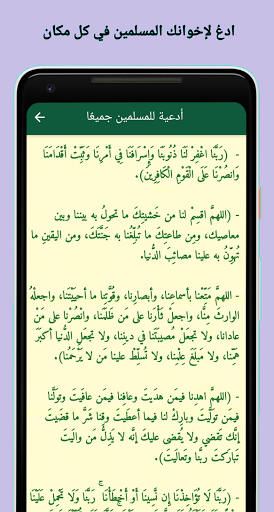 ادعُ لإخوانك المسلمين في كل مكان
أدعية للمسلمين جميعًا
- (رَبَّنَا اغْفِرْ لَنَا ذُنُوبَنَا وَإِسْرَافَنَا فِي أَمْرِنَا وَثَبِّتْ أَقْدَامَنَا
وَانصُرْنَا عَلَى الْقَوْمِ الْكَافِرِينَ).
- (اللهمَّ اقسِمْ لنا من خَشيتِكَ ما تحولُ به بيننا وبين
معاصيك، ومن طاعتِكَ ما تُبلِّغُنا به جَنَّتَكَ، ومن اليقينِ ما
تُهوِّنُ به علينا مصائبَ الدُّنيا.
- اللهمَّ متِّعْنا بأسماعِنا، وأبصارِنا، وقُوَّتِنا ما أحيَيْتَنا، واجعلْهُ
الوارثَ مِنَّا، واجعلْ ثَأرَنا على مَن ظَلَمَنا، وانْصُرْنا على مَنْ
عادانا، ولا تجعَلْ مُصيبَتَنا في دينِنا، ولا تجعَلِ الدُّنيا أكبَرَ
هَمِّنا، ولا مبلَغَ عِلْمِنا، ولا تُسلِّطْ علينا مَن لا يَرْحَمُنا).
- (اللَّهمَّ اهدِنا فيمَن هدَيتَ وعافِنا فيمَن عافَيتَ وتولَّنا
فيمَن تولَّيتَ وبارِكْ لنا فيما أعطَيتَ وقِنا شَرَّ ما قضَيتَ
إنَّك تَقضي ولا يُقضى عليك إنَّه لا يَذِلُّ مَن والَيتَ
تَبارَكتَ ربَّنا وتعالَيتَ).
- (رَبَّنَا لَا تُؤَاخِذْنَا إِن نَّسِينَا أَوْ أَخْطَأْنَا ۚ رَبَّنَا وَلَا تَحْمِلْ عَلَيْنَا